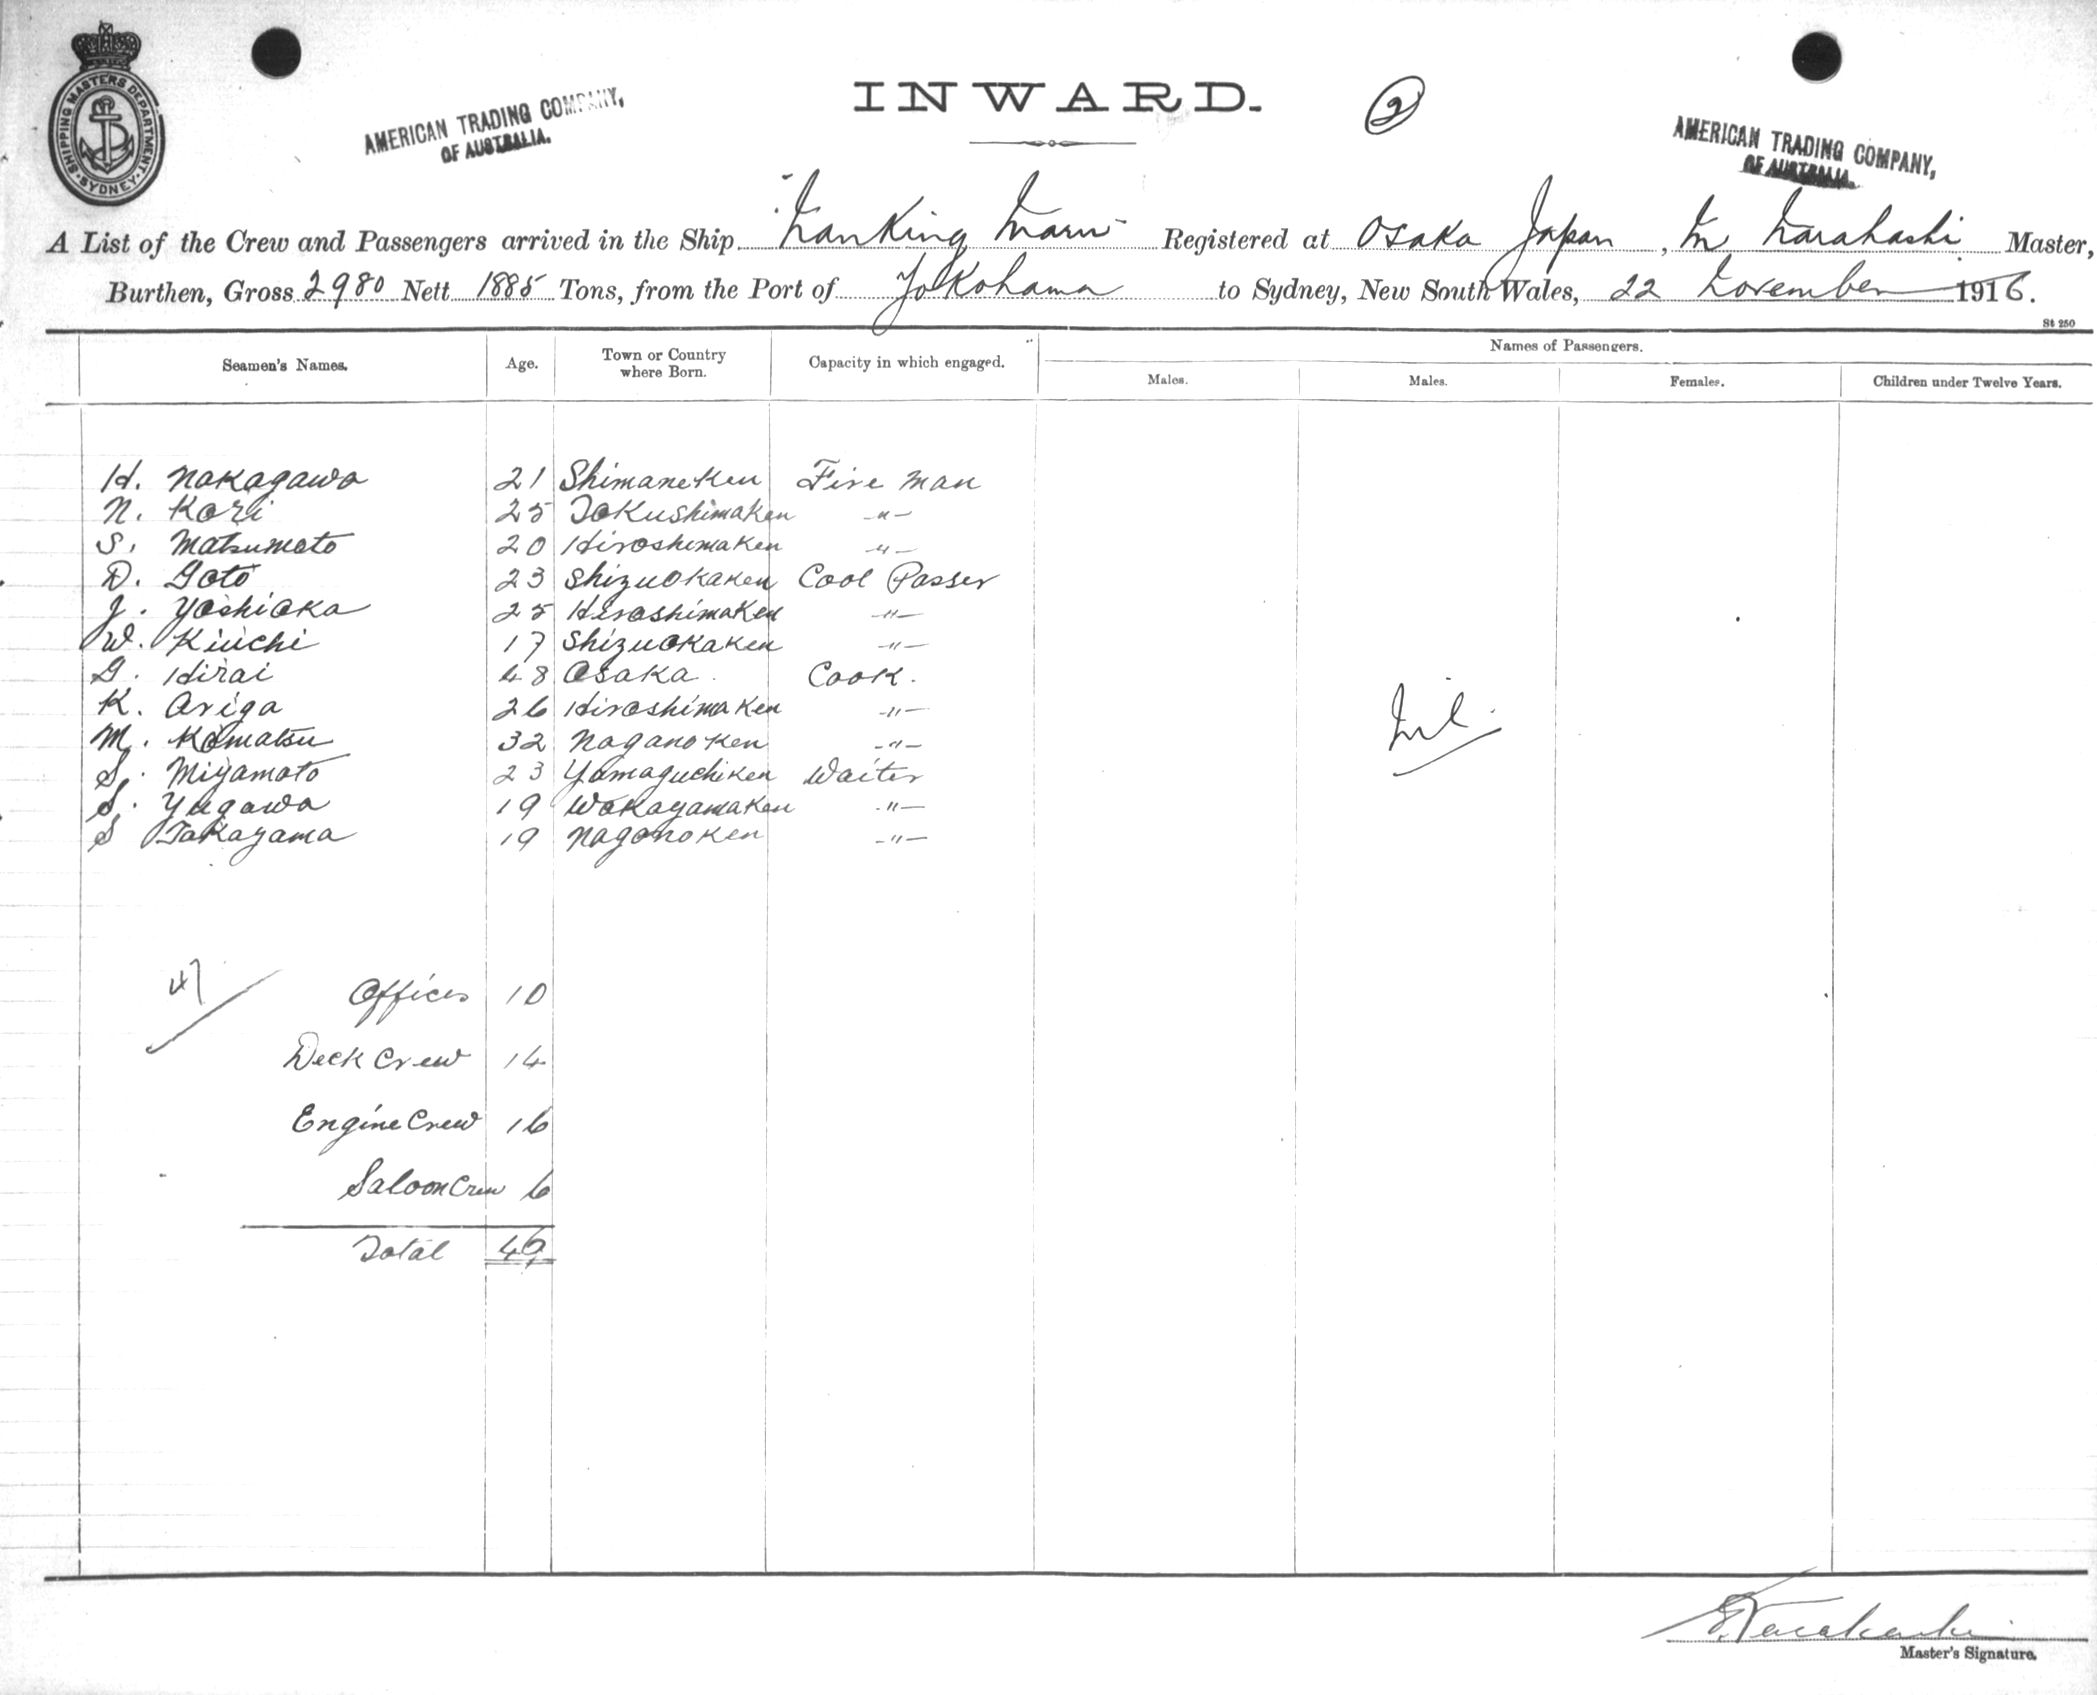 SHIPPING MASTERS DEPARTMENT
SYDNEY
AMERICAN TRADING COMPANY,
OF AUSTRALIA.
INWARD.
2
AMERICAN TRADING COMPANY,
OF AUSTRALIA.
A List of the Crew and Passengers arrived in the Ship "Nanking Maru" Registered at Osaka Japan, M Narahashi Master,
Burthen, Gross 2980 Nett 1885 Tons, from the Port of Yokohama to Sydney, New South Wales, 22 November 1916.
St 250
Seamen's Names. Age. Town or Country where Born. Capacity in which engaged. Names of Passengers.
Males. Males. Females. Children under Twelve Years.
H. Nakagawa 21 Shimaneken Fire man
N. Kori 25 Tokushimaken -"-
S. Matsumoto 20 Hiroshimaken -"-
D. Goto 23 Shizuokaken Cool Passer
J. Yoshioka 25 Hiroshimaken -"-
W. Kiuchi 17 Shizuokaken -"-
G. Hirai 48 Osaka Cook.
K. Ariga 26 Hiroshimaken -"-
M. Komatsu 32 Naganoken -"-
Nil
S. Miyamoto 23 Yamaguchiken Waiter
S. Yugawa 19 Wakayamaken -"-
S Takayama 19 Naganoken -"-
47
Offices 10
Deck Crew 14
Engine Crew 16
Saloon Crew 6
Total 46
Master's Signature.